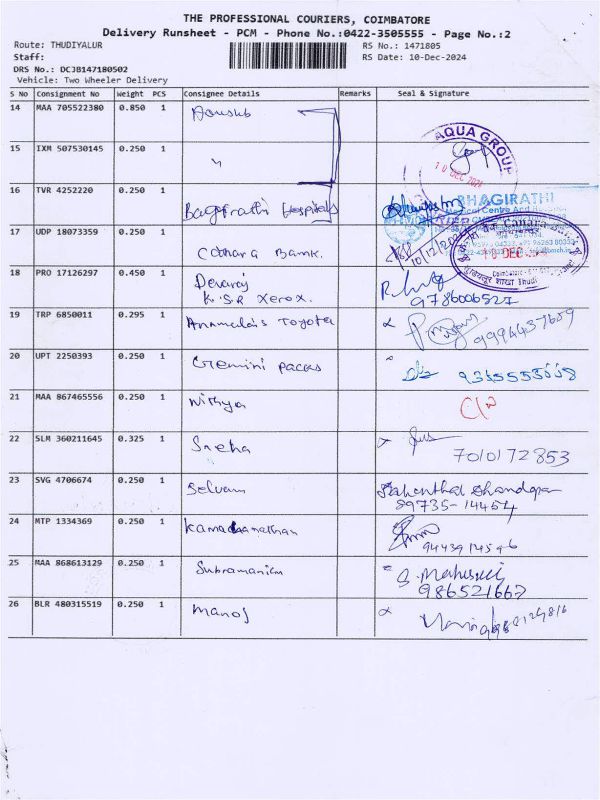 THE PROFESSIONAL COURIERS, COIMBATORE
Delivery Runsheet - PCM - Phone No.:0422-3505555 - Page No.:2
Route: THUDIYALUR
RS No.: 1471805
Staff:
RS Date: 10-Dec-2024
DRS No.: DCJB147180502
Vehicle: Two Wheeler Delivery
S No Consignment No Weight PCS Consignee Details Remarks Seal & Signature
14 MAA 705522380 0.850 1
AQUA GROUP
10 DEC 2024
15 IXM 507530145 0.250 1 "
16 TVR 4252220 0.250 1 Bagirathi Hospitals
BHAGIRATHI
10/12/2024
17 UDP 18073359 0.250 1 Canara Bank.
Canara
10 DEC
18 PRO 17126297 0.450 1 Devaraj
K.S.R Xerox.
9786006527
19 TRP 6850011 0.295 1 Anamalais Toyota
9994437609
20 UPT 2250393 0.250 1 Gemini Packs
21 MAA 867465556 0.250 1 Nithya
22 SLM 360211645 0.325 1 Sneha
7010172853
23 SVG 4706674 0.250 1 Selvam
89735-14454
24 MTP 1334369 0.250 1
9443914596
25 MAA 868613129 0.250 1 Subramanian
986521667
26 BLR 480315519 0.250 1 Manoj